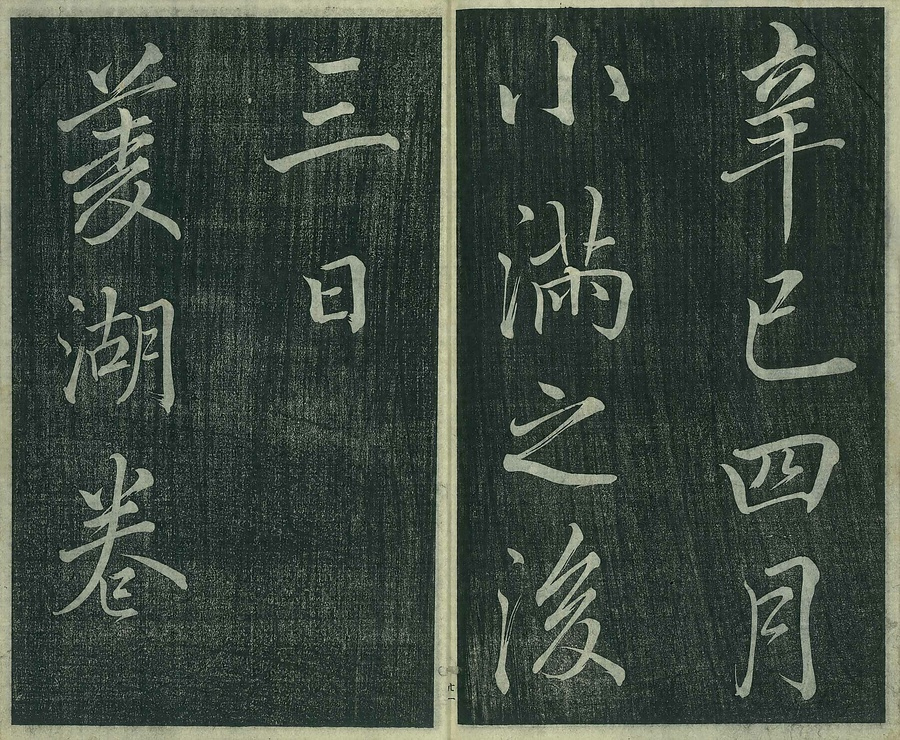 辛巳四月
小滿之後
三日
菱湖卷